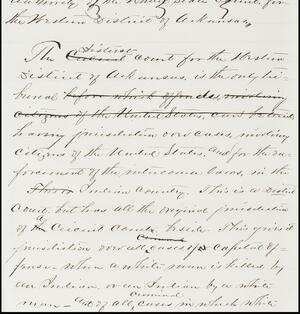 the Western District of Arkansas,
District
The Circuit court for the Western
District of Arkansas, is the only tri-
bunal before which offenders, involving
citizens of the United States, can be tried
having jurisdiction over cases, involving
citizens of the United States, and for the en-
forcement of the intercourse laws, in the
Indian Country. This is a District
Court, but has all the original jurisdiction
of a Circuit Court, beside. This gives it
Criminal
jurisdiction over all cases of capital of-
fense - when a white man is killed by
an Indian, or an Indian by a white
criminal
man - and of all, cases in which white